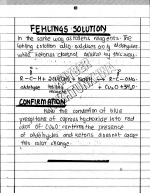 FEHLINGS SOLUTION
In the same way as tollens reagents. The
fehling solution also oxidises only aldehydes
while ketones cannot oxidised by this way.
R-C-H + 2Cu(OH)2 + NaOH → R-C-ONa
aldehyde + Cu2O + 3H2O
CONFIRMATION
Note the conversion of blue
precipitate of cuprous hydroxide into red
Cu2O confirms the presence
of aldehydes and ketones doesnt cause
this color change.